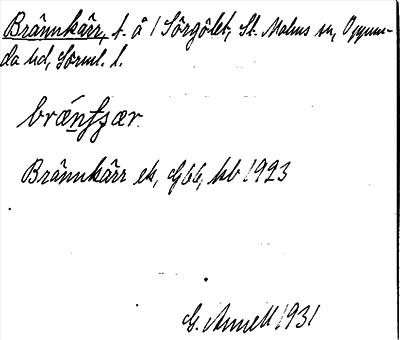 Brännkärr, t. å 1 Sörgölet, St. Malms sn, Oppun-
da hd, Sörml. l.
Brännkärr ek, G 66, kb 1923
G. Annell 1931